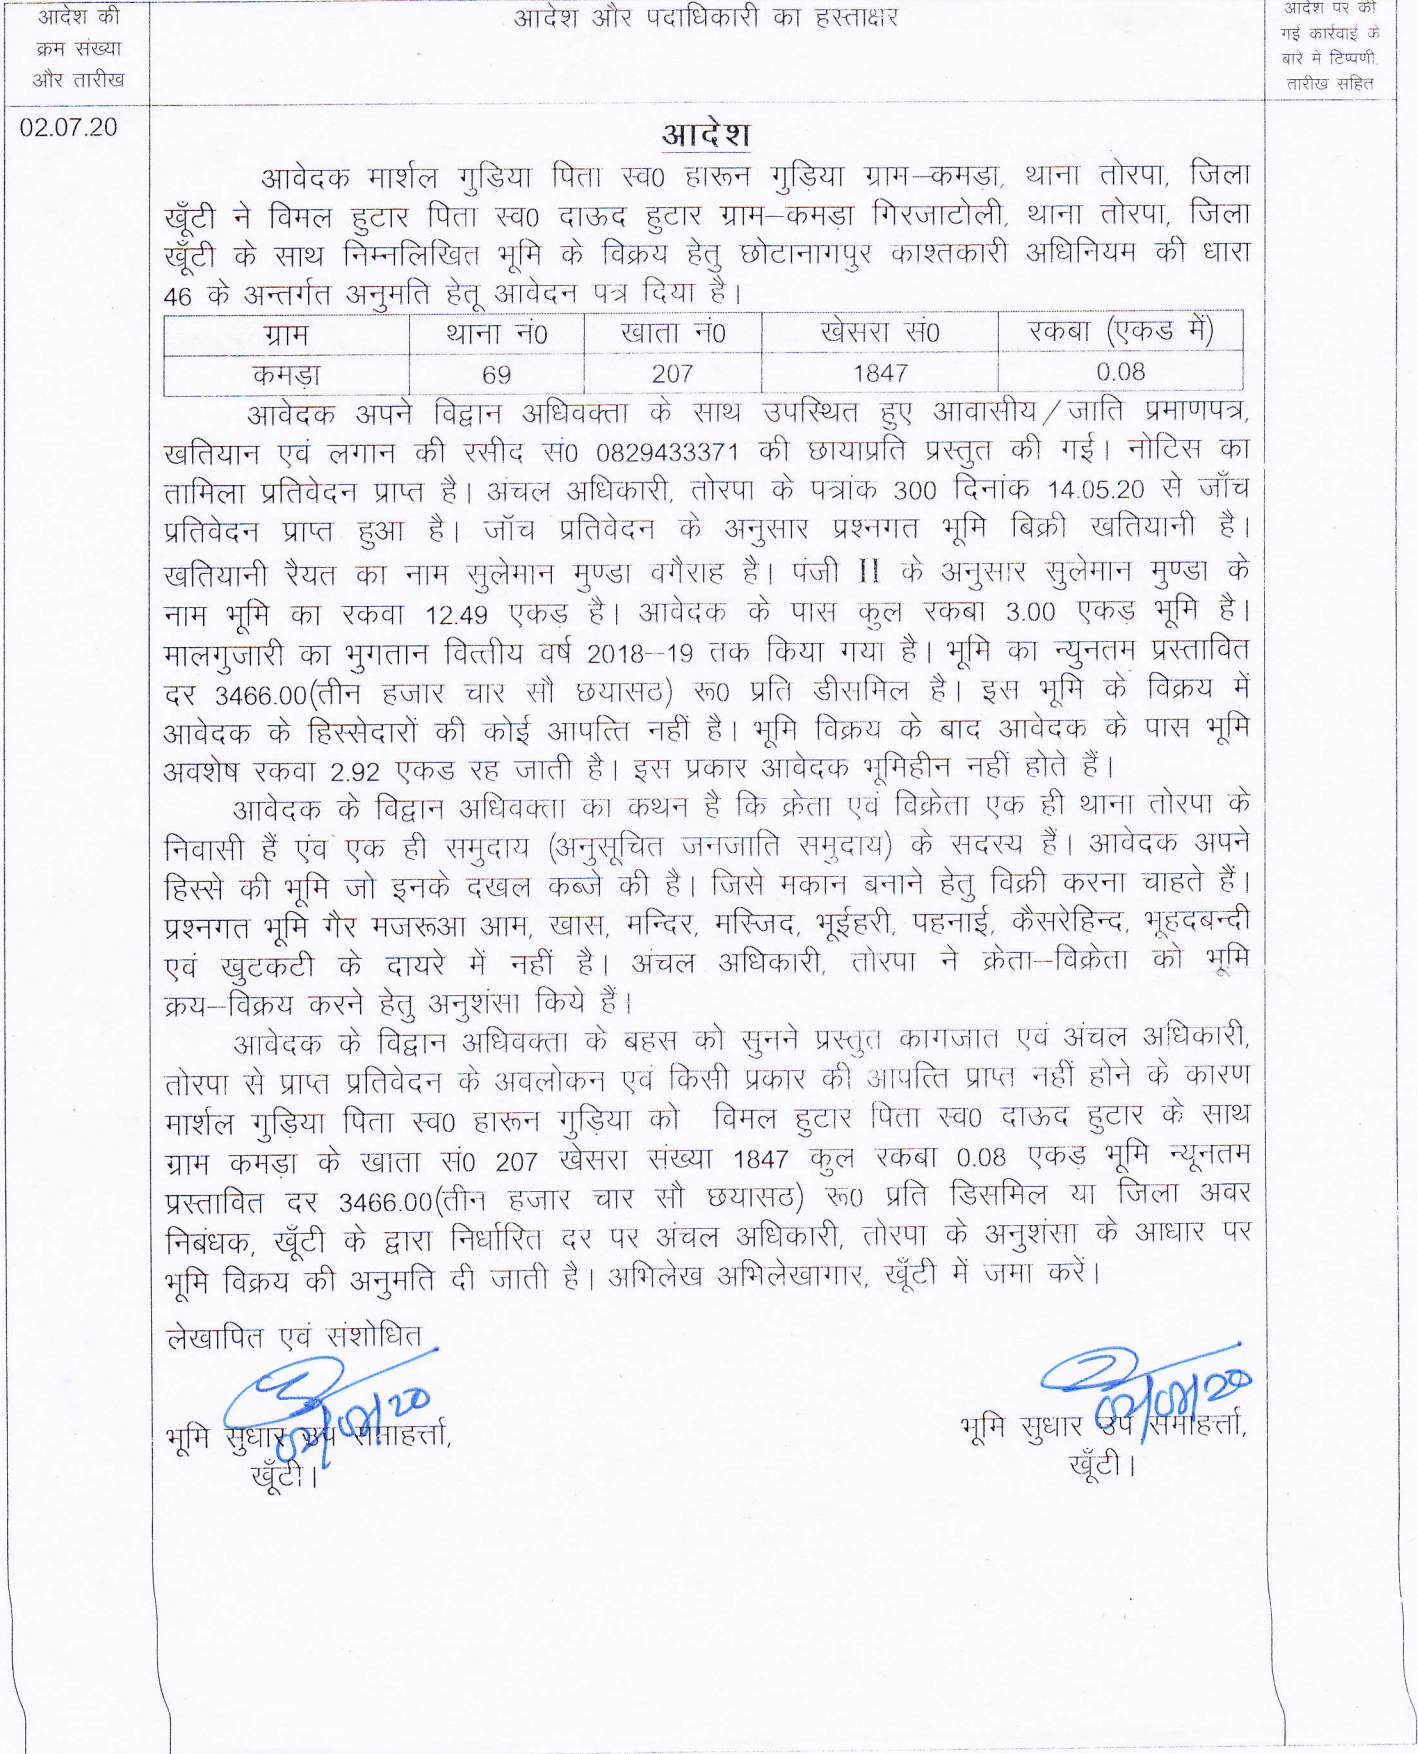 आदेश की
क्रम संख्या
और तारीख
आदेश और पदाधिकारी का हस्ताक्षर
आदेश पर की
गई कार्रवाई के
बारे में टिप्पणी,
तारीख सहित
02.07.20
आदेश
आवेदक मार्शल गुड़िया पिता स्व0 हारून गुड़िया ग्राम–कमड़ा, थाना तोरपा, जिला
खूँटी ने विमल हुटार पिता स्व0 दाऊद हुटार ग्राम–कमड़ा गिरजाटोली, थाना तोरपा, जिला
खूँटी के साथ निम्नलिखित भूमि के विक्रय हेतु छोटानागपुर काश्तकारी अधिनियम की धारा
46 के अन्तर्गत अनुमति हेतू आवेदन पत्र दिया है।
ग्राम थाना नं0 खाता नं0 खेसरा सं0 रकबा (एकड में)
कमड़ा 69 207 1847 0.08
आवेदक अपने विद्वान अधिवक्ता के साथ उपस्थित हुए आवासीय/जाति प्रमाणपत्र,
खतियान एवं लगान की रसीद सं0 0829433371 की छायाप्रति प्रस्तुत की गई। नोटिस का
तामिला प्रतिवेदन प्राप्त है। अंचल अधिकारी, तोरपा के पत्रांक 300 दिनांक 14.05.20 से जॉंच
प्रतिवेदन प्राप्त हुआ है। जॉंच प्रतिवेदन के अनुसार प्रश्नगत भूमि बिक्री खतियानी है।
खतियानी रैयत का नाम सुलेमान मुण्डा वगैराह है। पंजी II के अनुसार सुलेमान मुण्डा के
नाम भूमि का रकवा 12.49 एकड़ है। आवेदक के पास कुल रकबा 3.00 एकड़ भूमि है।
मालगुजारी का भुगतान वित्तीय वर्ष 2018–19 तक किया गया है। भूमि का न्युनतम प्रस्तावित
दर 3466.00(तीन हजार चार सौ छयासठ) रू0 प्रति डीसमिल है। इस भूमि के विक्रय में
आवेदक के हिस्सेदारों की कोई आपत्ति नहीं है। भूमि विक्रय के बाद आवेदक के पास भूमि
अवशेष रकवा 2.92 एकड़ रह जाती है। इस प्रकार आवेदक भूमिहीन नहीं होते हैं।
आवेदक के विद्वान अधिवक्ता का कथन है कि क्रेता एवं विक्रेता एक ही थाना तोरपा के
निवासी हैं एंव एक ही समुदाय (अनुसूचित जनजाति समुदाय) के सदस्य हैं। आवेदक अपने
हिस्से की भूमि जो इनके दखल कब्जे की है। जिसे मकान बनाने हेतु विक्री करना चाहते हैं।
प्रश्नगत भूमि गैर मजरूआ आम, खास, मन्दिर, मस्जिद, भूईहरी, पहनाई, कैसरेहिन्द, भूहदबन्दी
एवं खुटकटी के दायरे में नहीं है। अंचल अधिकारी, तोरपा ने क्रेता–विक्रेता को भूमि
क्रय–विक्रय करने हेतु अनुशंसा किये हैं।
आवेदक के विद्वान अधिवक्ता के बहस को सुनने प्रस्तुत कागजात एवं अंचल अधिकारी,
तोरपा से प्राप्त प्रतिवेदन के अवलोकन एवं किसी प्रकार की आपत्ति प्राप्त नहीं होने के कारण
मार्शल गुड़िया पिता स्व0 हारून गुड़िया को विमल हुटार पिता स्व0 दाऊद हुटार के साथ
ग्राम कमड़ा के खाता सं0 207 खेसरा संख्या 1847 कुल रकबा 0.08 एकड़ भूमि न्यूनतम
प्रस्तावित दर 3466.00(तीन हजार चार सौ छयासठ) रू0 प्रति डिसमिल या जिला अवर
निबंधक, खूँटी के द्वारा निर्धारित दर पर अंचल अधिकारी, तोरपा के अनुशंसा के आधार पर
भूमि विक्रय की अनुमति दी जाती है। अभिलेख अभिलेखागार, खूँटी में जमा करें।
लेखापित एवं संशोधित
भूमि सुधार उप समाहर्त्ता,
खूँटी।
भूमि सुधार उप समाहर्त्ता,
खूँटी।